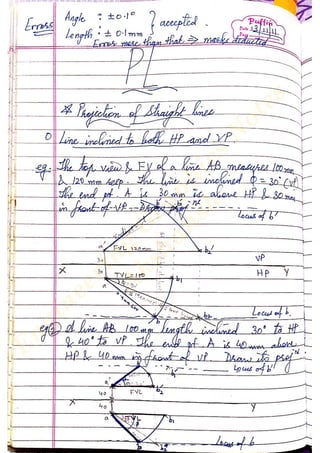 Errors
Angle : ±0.1° } accepted.
Length : ± 0.1mm
Error more than that ⇒ marks deducted
Date
PL
* Projection of Straight lines
① Line inclined to both HP and VP.
eg: The top view & FV of a line AB measures 100mm
& 120 mm resp. The line is inclined θ = 30°
The end pt A is 30mm is above HP & 30mm
in front of VP. Draw proj
Locus of b'
b2'
a'
FVL 120mm
VP
30
X
HP Y
30
TVL=100
b1
a
b
b2
Locus of b.
eg ② A line AB 100mm length inclined 30° to HP
& 40° to VP. The end pt. A is 40mm above
HP & 40mm in front of VP. Draw its projn
b'
Locus of b'
a'
FVL
40
X
Y
40
TVL
b1
a
b
Locus of b